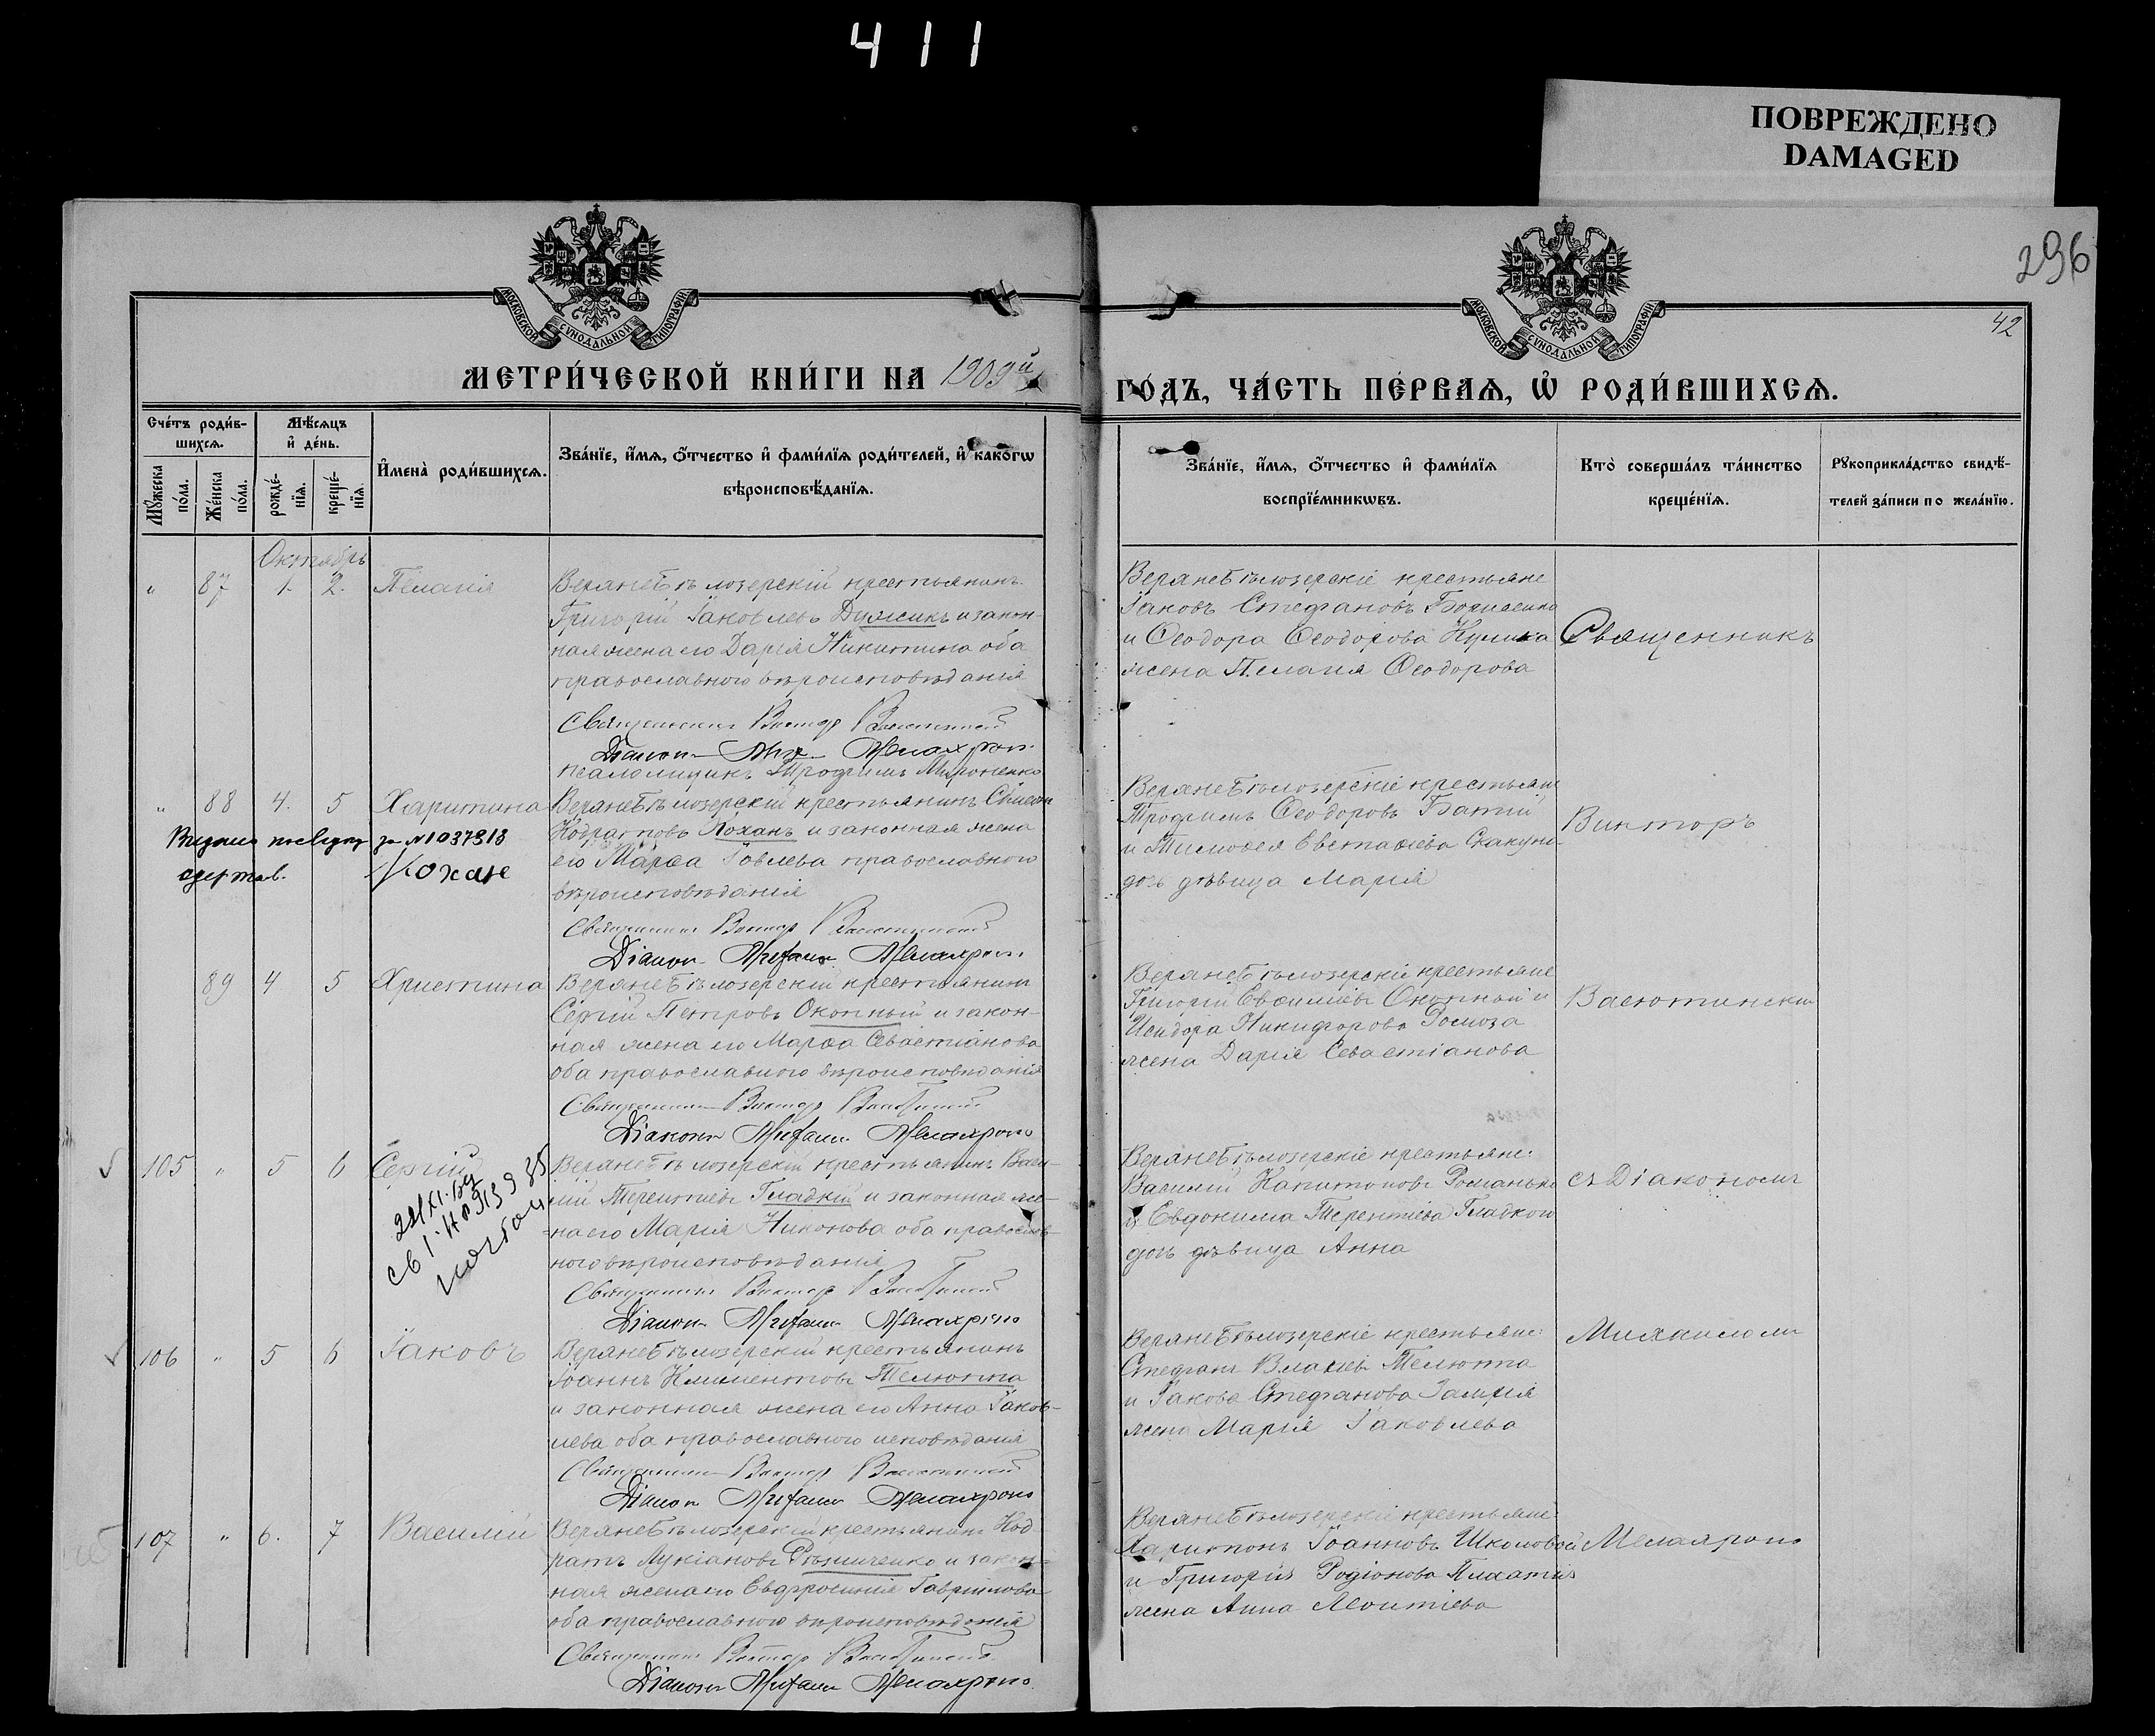 411
ПОВРЕЖДЕНО
DAMAGED
296
42
МОСКОВСКОЙ СѴНОДАЛЬНОЙ ТИПОГРАФІИ
МОСКОВСКОЙ СѴНОДАЛЬНОЙ ТИПОГРАФІИ
МЕТРИ́ЧЕСКОЙ КНИ́ГИ НА 1909й
ГО́ДЪ, ЧА́СТЬ ПЕ́РВАѦ, Ѽ РОДИ́ВШИХСѦ.
Сче́тъ роди́в-
шихсѧ.
Мꙋжеска по́ла.
Же́нска по́ла.
Мѣ́сѧцъ
и҆ де́нь.
рожде́-
нїѧ.
креще́-
нїѧ.
И҆мена̀ роди́вшихсѧ.
Зва́нїе, и҆́мѧ, ѻ҆́тчество и҆ фами́лїѧ роди́телей, и҆ како́гѡ
вѣроисповѣ́данїѧ.
Зва́нїе, и҆́мѧ, ѻ҆́тчество и҆ фами́лїѧ
воспрїе́мникѡвъ.
Кто̀ соверша́лъ та́инство
креще́нїѧ.
Рꙋкоприкла́дство свидѣ́-
телей за́писи по жела́нїю.
Октябрь
" 87 1. 2. Пелагія
Верхнебѣлозерскій крестьянинъ
Григорій Іаковлевъ Дужикъ и закон-
ная жена его Дарія Никитина оба
православнаго вѣроисповѣданія
Священникъ Викторъ Васютинскій
Діаконъ Мих. Мелахронъ
Псаломщикъ Трофимъ Мироненко
Верхнебѣлозерскіе крестьяне
Іаковъ Стефановъ
и Ѳеодора Ѳеодорова Кулика
жена Пелагія Ѳеодорова
Священникъ
" 88 4. 5 Харитина
Верхнебѣлозерскій крестьянинъ
Кодратовъ Коханъ и законная жена
его Марѳа Іовлева православнаго
вѣроисповѣданія
Священникъ Викторъ Васютинскій
Діаконъ Михаилъ Мелахронъ
за №1037818
Кохан
Верхнебѣлозерскіе крестьяне
Трофимъ Ѳеодоровъ Батій
и Тимоѳея Евстаѳіева Скакуна
дочь дѣвица Марія
Викторъ
89 4 5 Христина
Верхнебѣлозерскій крестьянинъ
Сергій Петровъ Окопный и закон-
ная жена его Марѳа Севастіанова
оба православнаго вѣроисповѣданія
Священникъ Викторъ Васютинскій
Діаконъ Михаилъ Мелахронъ
Верхнебѣлозерскіе крестьяне
Григорій Евѳиміевъ Окопный и
Исидора Никифорова
жена Дарія Севастіанова
Васютинскій
105 " 5 6 Сергій
Верхнебѣлозерскій крестьянинъ Васи-
лій Терентіевъ Гладкій и законная же-
на его Марія Никонова оба православ-
наго вѣроисповѣданія
Священникъ Викторъ Васютинскій
Діаконъ Михаилъ Мелахронъ
Верхнебѣлозерскіе крестьяне:
Василій Капитоновъ Романько
и Евдокима Терентіева Гладкого
дочь дѣвица Анна
съ Діакономъ
106 " 5 6 Іаковъ
Верхнебѣлозерскій крестьянинъ
Іоаннъ Климентовъ Телюпа
и законная жена его Анна Іаков-
лева оба православнаго исповѣданія
Священникъ Викторъ Васютинскій
Діаконъ Михаилъ Мелахронъ
Верхнебѣлозерскіе крестьяне:
Стефанъ Власіевъ Телюпа
и Іакова Стефанова
жена Марія Іаковлева
Михаиломъ
107 " 6. 7 Василій
Верхнебѣлозерскій крестьянинъ Код-
ратъ Лукіановъ Рѣзниченко и закон-
ная жена его Евфросинія Гавріилова
оба православнаго вѣроисповѣданія
Священникъ Викторъ Васютинскій
Діаконъ Михаилъ Мелахронъ
Верхнебѣлозерскіе крестьяне:
Харитонъ Іоанновъ Школовой
и Григорія Родіонова
жена Анна Леонтіева
Мелахронъ